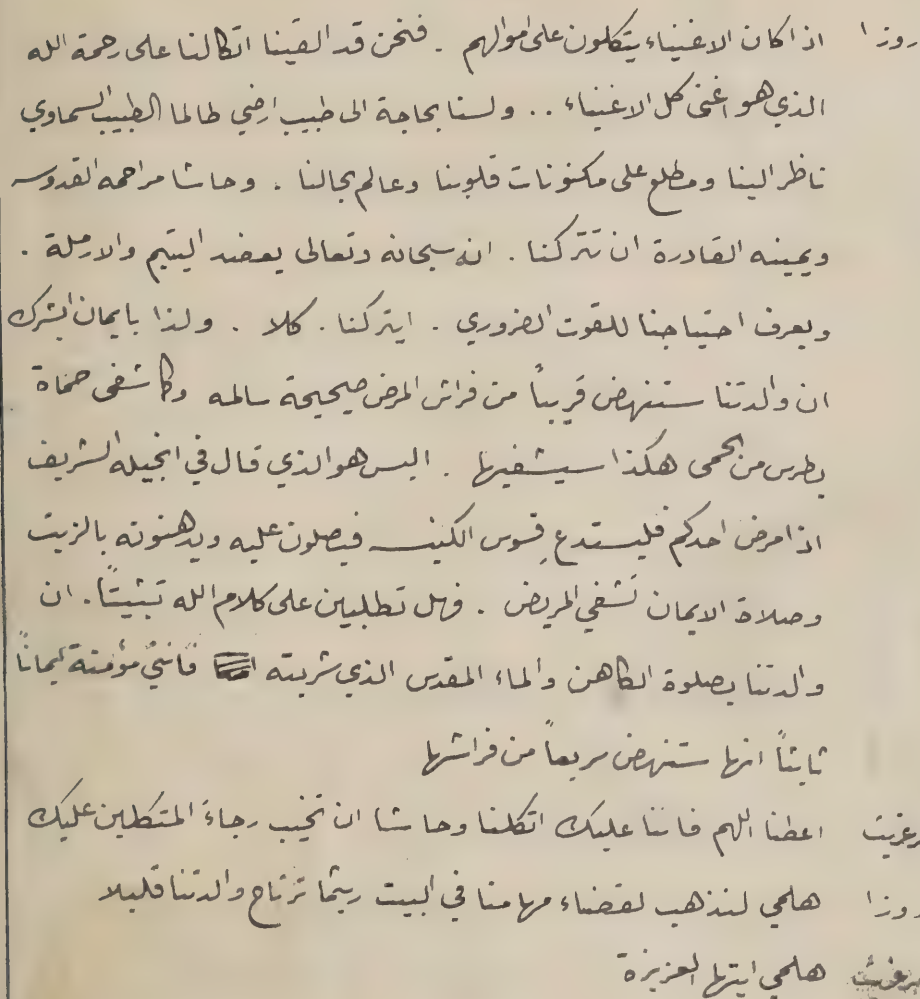 روزا اذا كان الاغنياء يتكلون على اموالهم . فنحن قد القينا اتكالنا على رحمة الله
الذي هو اغنى كل الاغنياء . . ولسنا بحاجة الى طبيب ارضي طالما الطبيب السماوي
ناظر الينا ومطلع على مكنونات قلوبنا وعالم بحالنا . وحاشا مراحمه القدوسه
ويمينه القادرة ان تتركنا . انه سبحانه وتعالى يعضد اليتيم والارملة .
ويعرف احتياجنا للقوت الضروري . ايتركنا . كلا . ولذا بايمان ابشرك
ان والدتنا ستنهض قريباً من فراش المرض صحيحة سالمه وكما شفى حماة
بطرس من الحمى هكذا سيشفيها . اليس هو الذي قال في انجيله الشريف
اذا مرض احدكم فليستدع قسوس الكنيسه فيصلون عليه ويدهنونه بالزيت
وصلاة الايمان تشفي المريض . فهل تطلبين على كلام الله تثبيتاً . ان
والدتنا بصلوة الكاهن والماء المقدس الذي شربته فانني مؤمنة ايماناً
ثابتاً انها ستنهض سريعاً من فراشها
مرغريت اعطنا اللهم فاننا عليك اتكلنا وحاشا ان تخيب رجاءَ المتكلين عليك
روزا هلمي لنذهب لقضاء مهامنا في البيت ريثما ترتاح والدتنا قليلا
مرغريت هلمي ايتها العزيزة